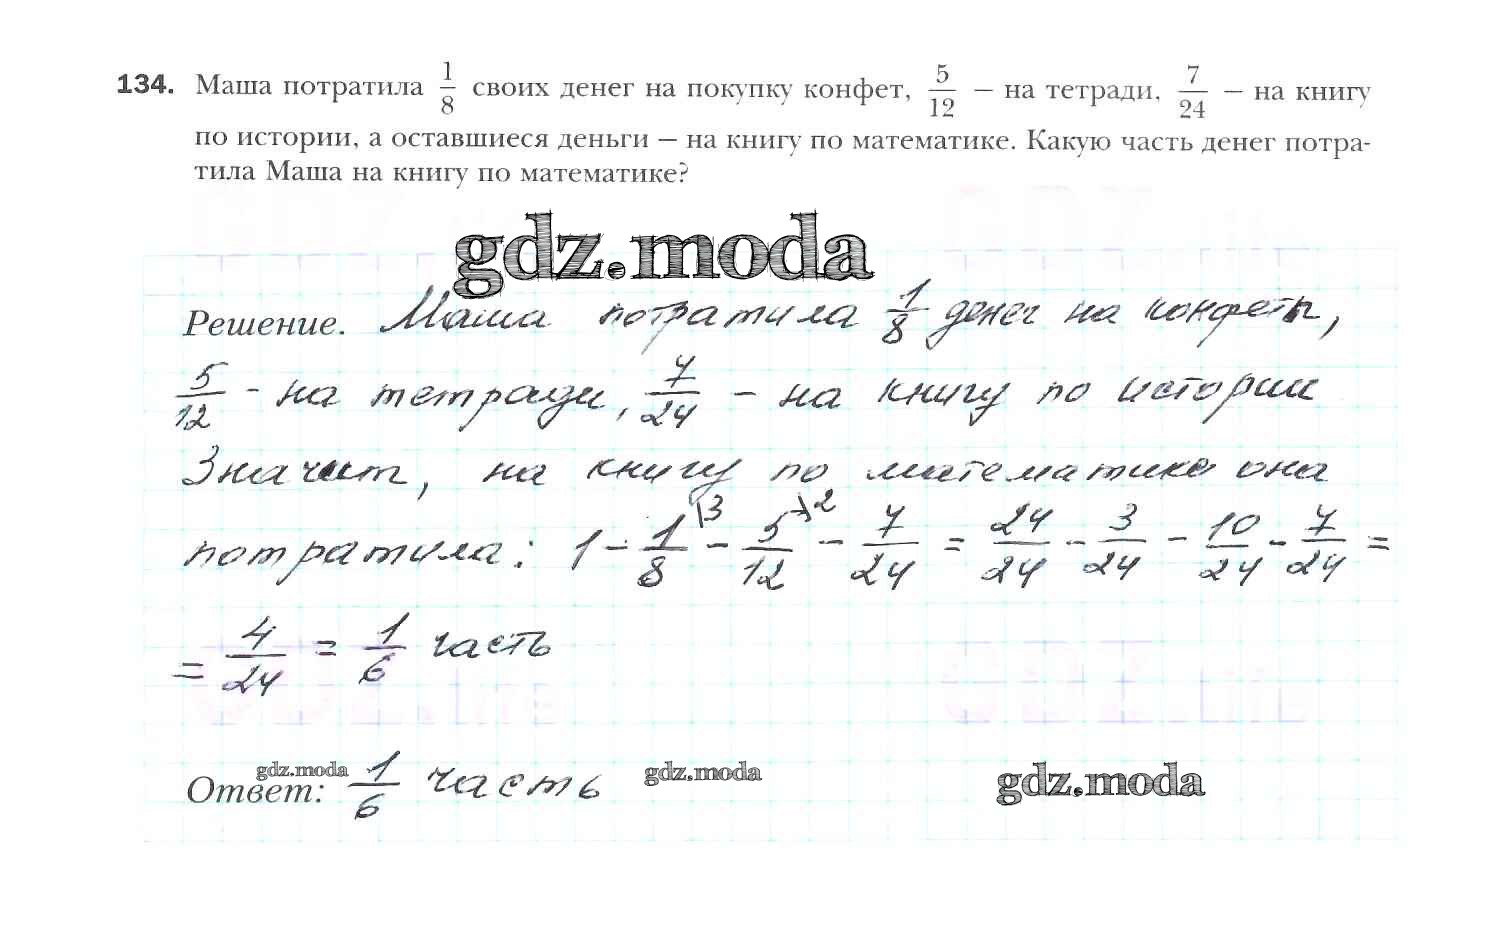 134. Маша потратила 1/8 своих денег на покупку конфет, 5/12 – на тетради, 7/24 – на книгу
по истории, а оставшиеся деньги – на книгу по математике. Какую часть денег потра-
тила Маша на книгу по математике?
gdz.moda
Решение. Маша потратила 1/8 денег на конфеты,
5/12 - на тетради, 7/24 - на книгу по истории
Значит, на книгу по математике она
потратила: 1 - 1/8\3 - 5/12\2 - 7/24 = 24/24 - 3/24 - 10/24 - 7/24 =
= 4/24 = 1/6 часть
Ответ: 1/6 часть
gdz.moda gdz.moda gdz.moda